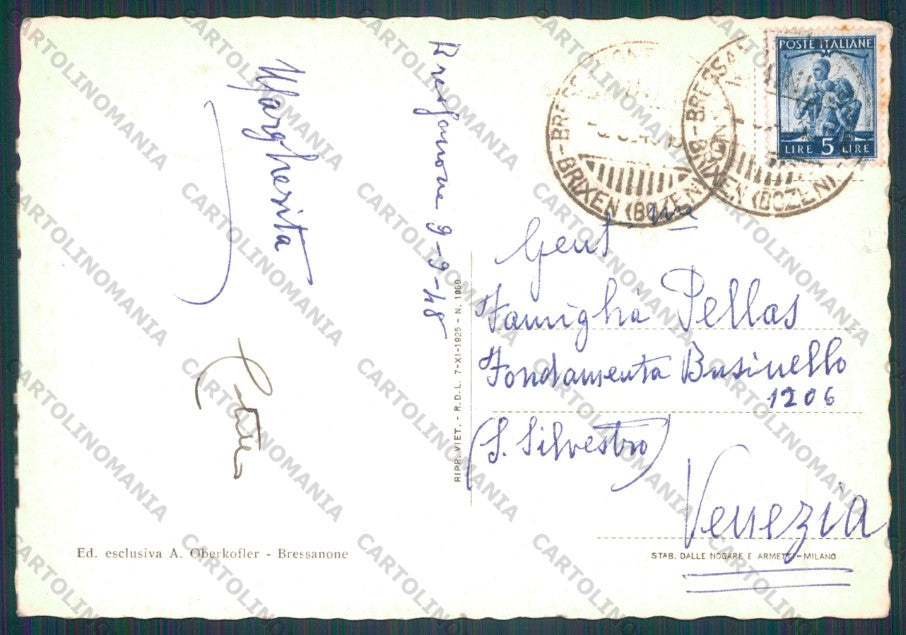 Bressanone 9-9-48
Margherita
POSTE ITALIANE
LIRE 5 LIRE
BRIXEN (BOZEN)
BRIXEN (BOZEN)
Gent.me
Famiglia Pellas
Fondamenta Businello
1206
(S. Silvestro)
Venezia
RIPR. VIET. - R.D.L. 7-XI-1925 - N. 1950
Ed. esclusiva A. Oberkofler - Bressanone
STAB. DALLE NOGARE E ARMETTI-MILANO
CARTOLINOMANIA